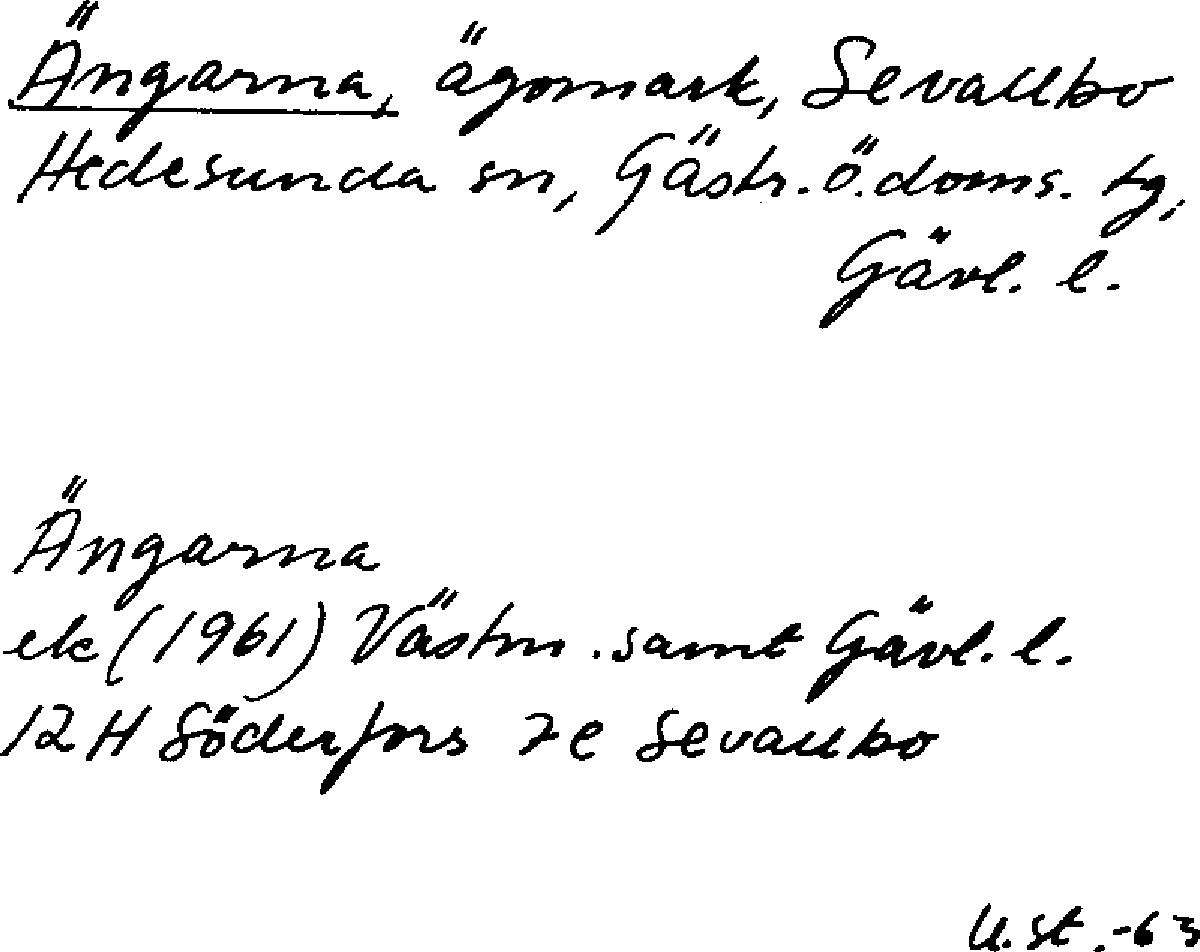 Ängarna, ägomark, Sevallbo
Hedesunda sn, Gästr. ö. doms. tg,
Gävl. l.
Ängarna
ek (1961) Västm. samt Gävl. l.
12 H Söderfors 7e Sevallbo
U. St. -63